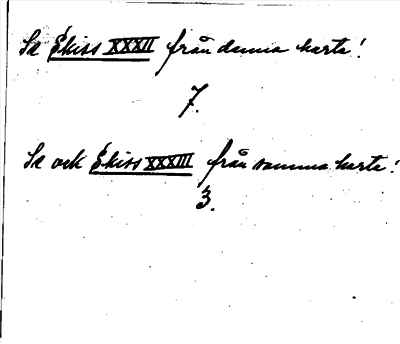 Se Skiss XXXII från denna karta!
7.
Se ock Skiss XXXIII från samma karta!
3.